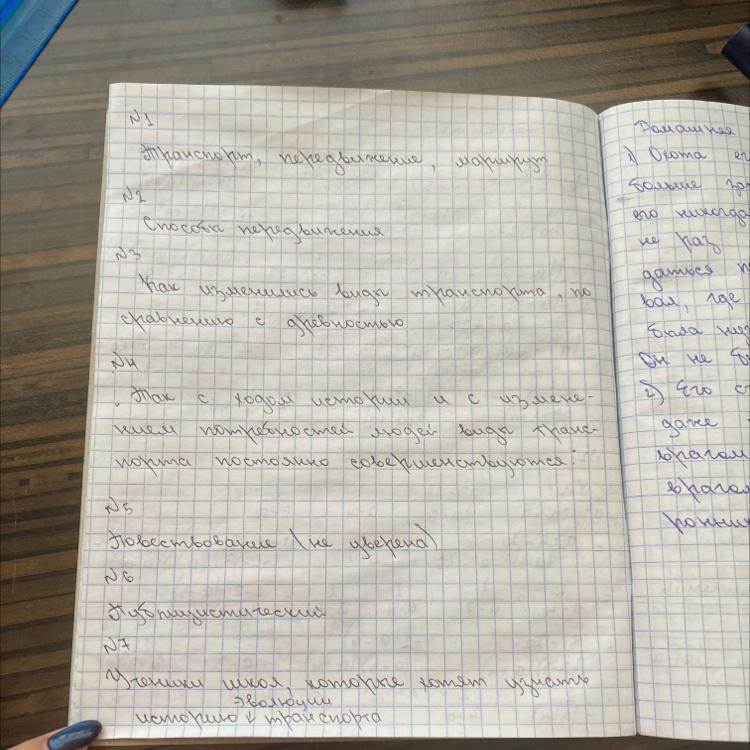 N1
Транспорт, передвижение, маршрут
N2
Способы передвижения
N3
Как изменились виды транспорта, по
сравнению с древностью
N4
Как с ходом истории и с измене-
нием потребностей людей виды транс-
порта постоянно совершенствуются.
N5
Повествование (не уверена)
N6
Публицистический
N7
Ученики школ, которые хотят узнать
эволюции
историю транспорта
Домашняя
1) Охота ег
больше
его никогда
не раз
даться
вал, где
была
он не
2) Его
даже
врагом
врагом